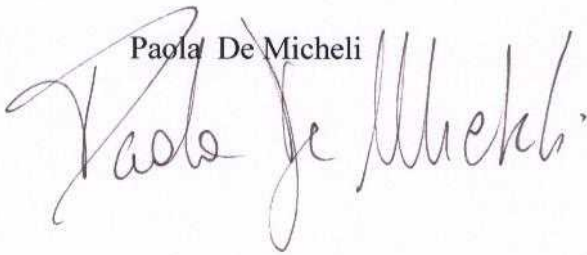 Paola De Micheli
Paola De Micheli